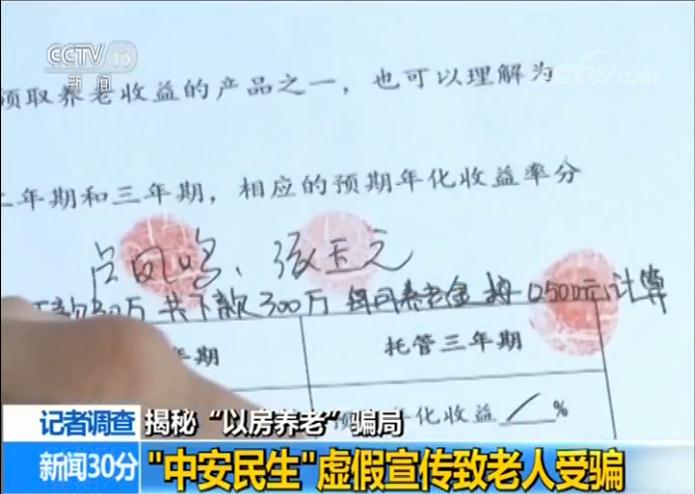 CCTV 13
新闻
CCTV.com
领取养老收益的产品之一，也可以理解为
二年期和三年期，相应的预期年化收益率分
卢凤鸣、张玉元
下款30万 共下款300万 每月养老金 按10500元计算
年期
托管三年期
预 年化收益 %
记者调查 揭秘“以房养老”骗局
新闻30分 "中安民生"虚假宣传致老人受骗